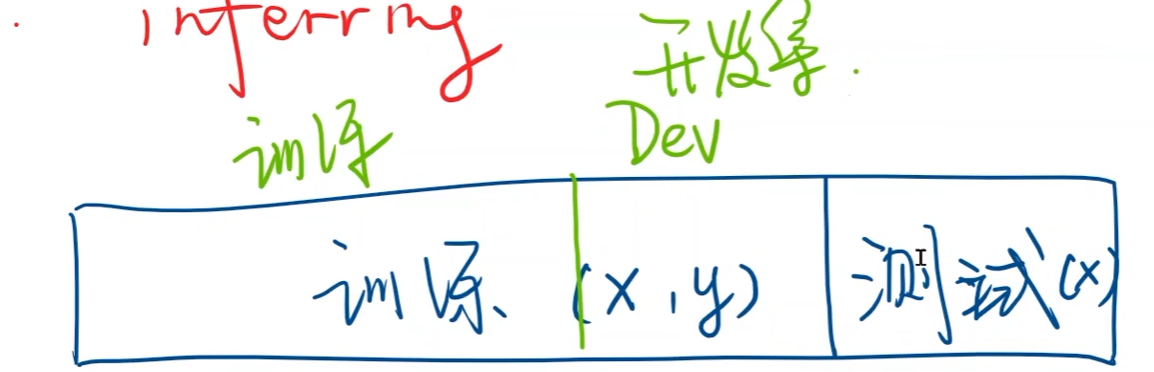 inferring
开发集.
训练
Dev
训练 (x,y)
测试(x)